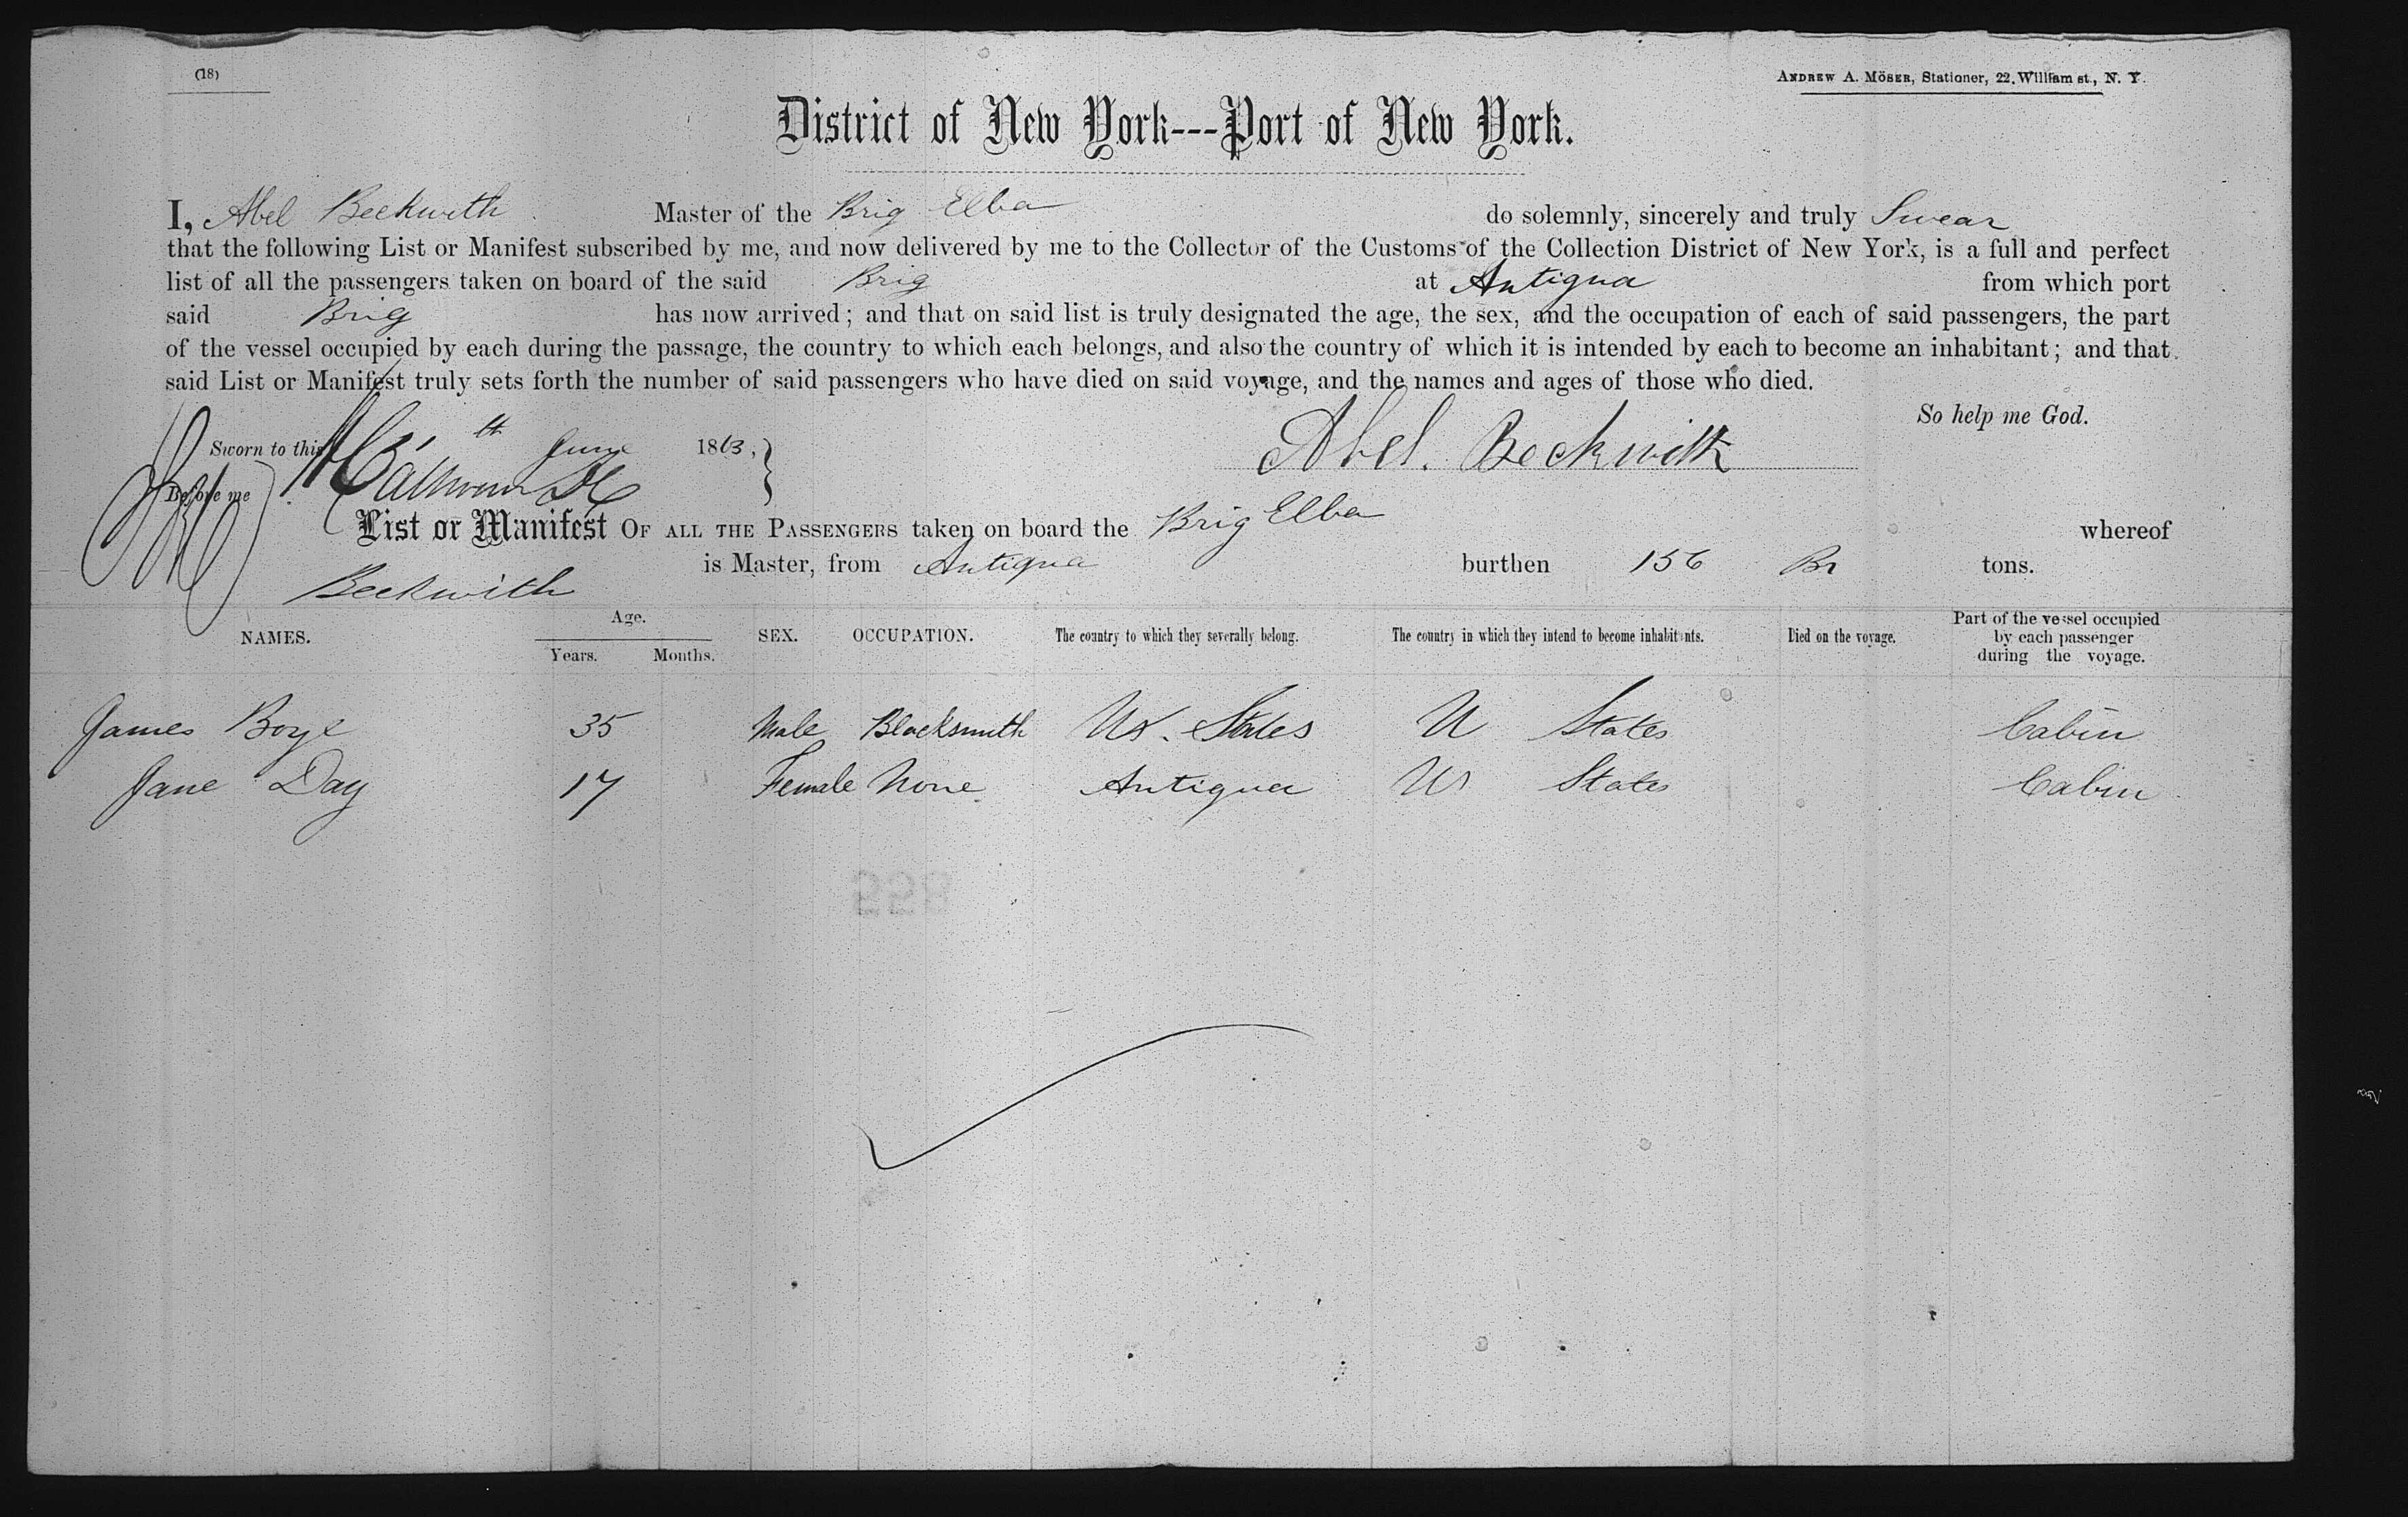 (18)
ANDREW A. MÖSER, Stationer, 22, William st., N. Y.
District of New York---Port of New York.
I, Abel Beckwith Master of the Brig Elba do solemnly, sincerely and truly Swear
that the following List or Manifest subscribed by me, and now delivered by me to the Collector of the Customs of the Collection District of New York, is a full and perfect
list of all the passengers taken on board of the said Brig at Antigua from which port
said Brig has now arrived; and that on said list is truly designated the age, the sex, and the occupation of each of said passengers, the part
of the vessel occupied by each during the passage, the country to which each belongs, and also the country of which it is intended by each to become an inhabitant; and that
said List or Manifest truly sets forth the number of said passengers who have died on said voyage, and the names and ages of those who died.
So help me God.
Sworn to this th June 1863,
Abel. Beckwith
Before me
List or Manifest OF ALL THE PASSENGERS taken on board the Brig Elba whereof
Beckwith is Master, from Antigua burthen 156 Br tons.
NAMES. Age. Years. Months. SEX. OCCUPATION. The country to which they severally belong. The country in which they intend to become inhabitants. Died on the voyage. Part of the vessel occupied by each passenger during the voyage.
James 35 Male Blacksmith States U States Cabin
Jane Day 17 Female None Antigua States Cabin